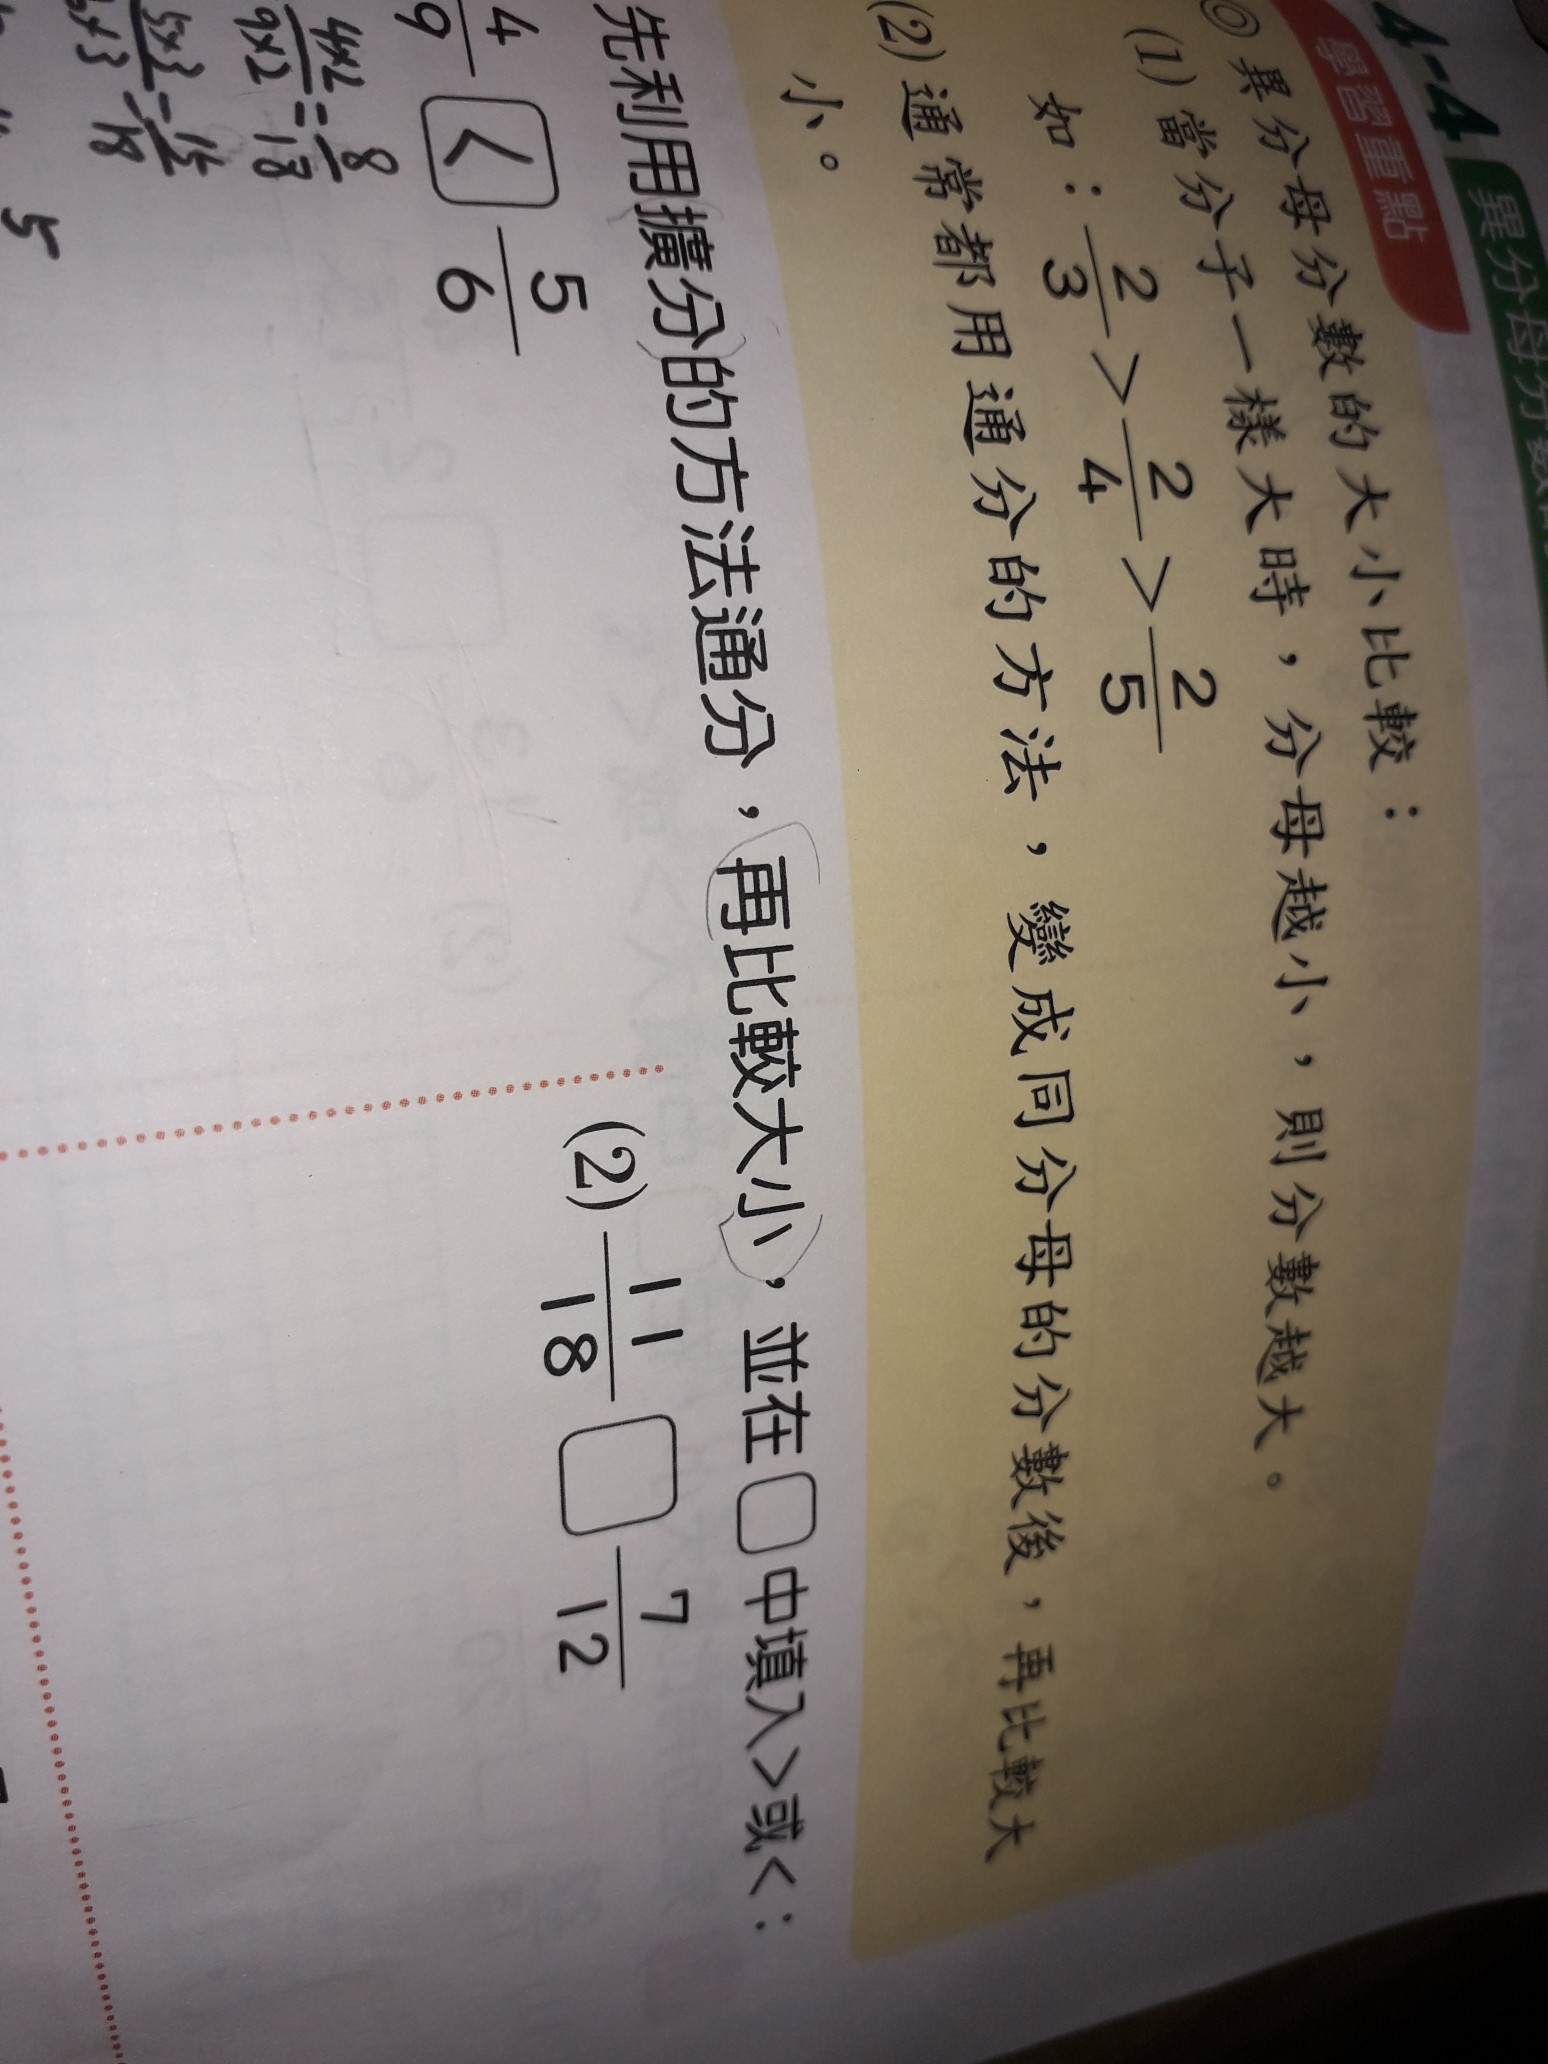 4-4 異分母分數
學習重點
◎異分母分數的大小比較：
(1)當分子一樣大時，分母越小，則分數越大。
如：2/3 > 2/4 > 2/5
(2)通常都用通分的方法，變成同分母的分數後，再比較大
小。
先利用擴分的方法通分，再比較大小，並在□中填入>或<：
4/9 < 5/6
(2) 11/18 □ 7/12
4×2/9×2 = 8/18
5×3/6×3 = 15/18
5